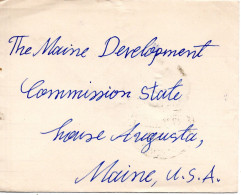 The Maine Development
Commission State
house Augusta,
Maine, U.S.A.